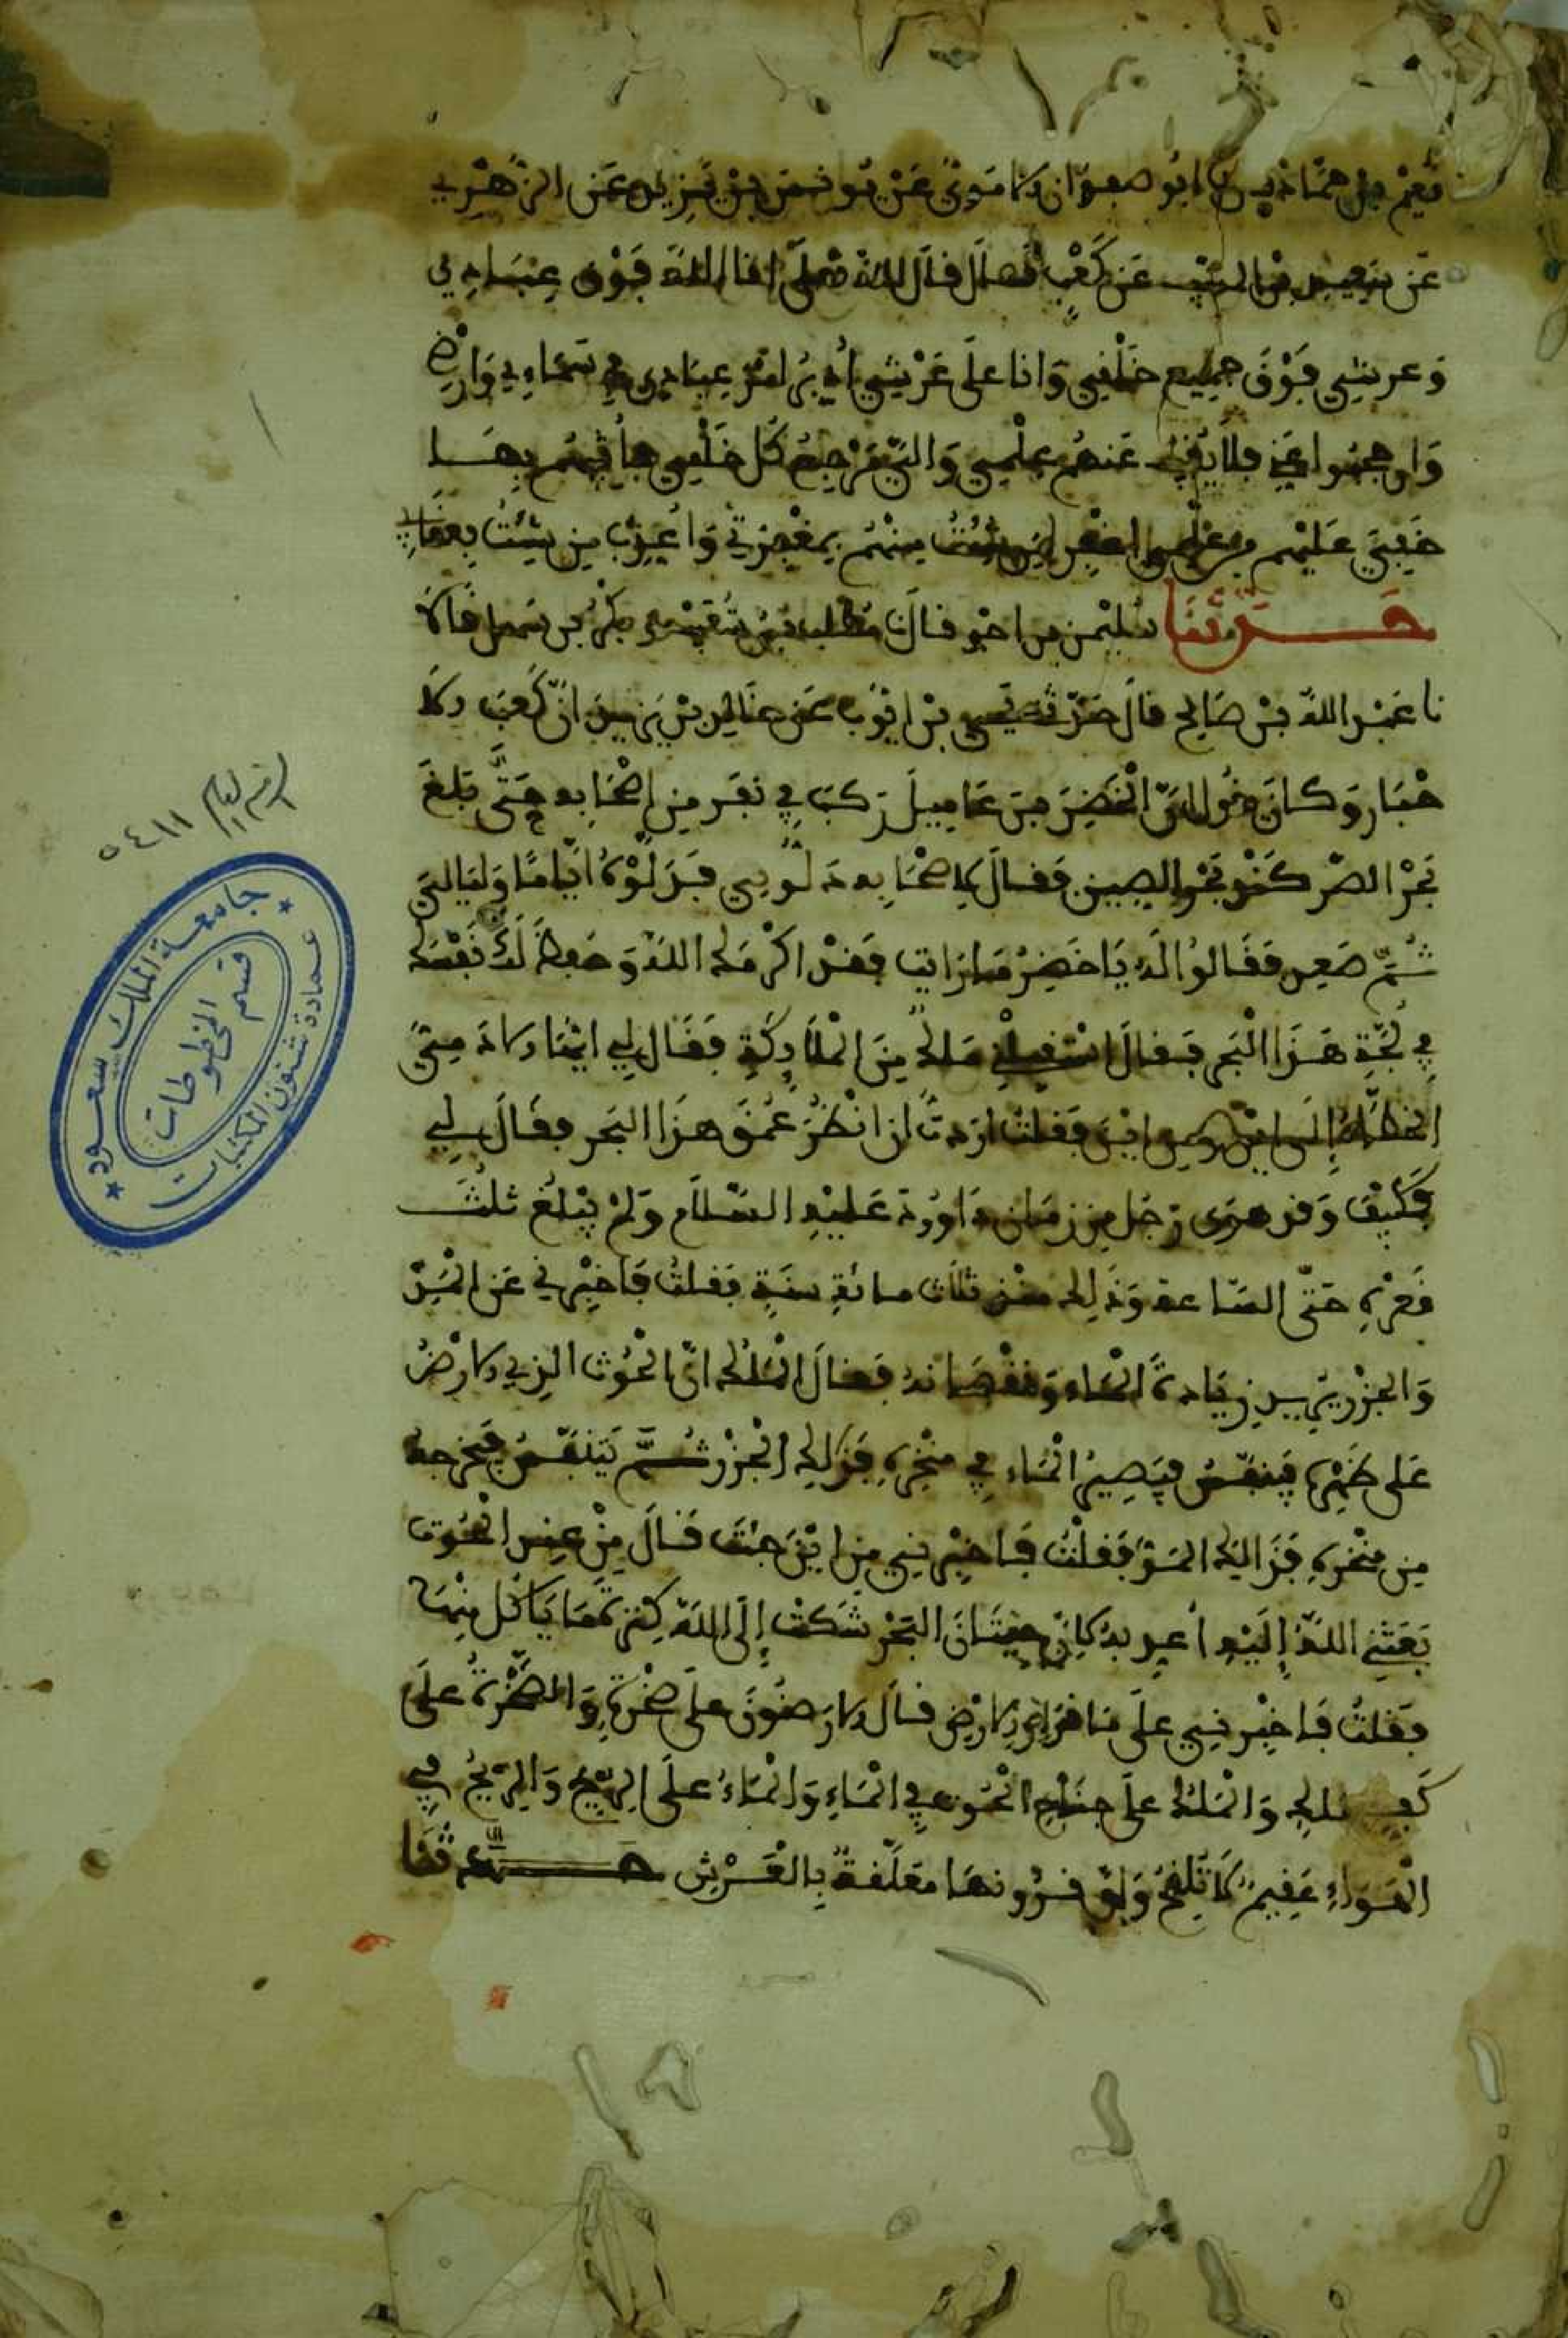 نعيم بن حماد نا ابو صفوان الاموي عن يونس بن يزيد عن الزهري
عن سعيد بن المسيب عن كعب قال قال الله عز وجل انا الله فوق عبادي
وعرشي فوق جميع خلقي وانا على عرشي ادبر امر عبادي في سماءي وارضي
وان حجبوا عني فلا يغيب عنهم علمي والي مرجع كل خلقي فأنبئهم بما
خفي عليهم من علمي اغفر لمن شئت منهم بمغفرتي واعذب من شئت بعقابي
حدثنا سليمن بن احمد قال نا مطلب بن شعيب وبكر بن سهل قالا
نا عبد الله بن صالح قال حدثني يحيى بن ايوب عن خالد بن يزيد ان كعب الا
حبار وكان يقول ان الخضر بن عاميل ركب في نفر من اصحابه حتى بلغ
بحر الصر كند وهو بحر الصين فقال لاصحابه دلوني فدلوه اياما وليالي
ثم صعد فقالوا له يا خضر ما رايت فقد اكرمك الله وحفظ لك نفسك
في لجة هذا البحر فقال استقبلني ملك من الملائكة فقال لي ايها الادمي
الخطاء الى اين ومن اين فقلت اردت ان انظر عمق هذا البحر فقال لي
فكيف وقد هوى رجل من زمان داوود عليه السلام ولم يبلغ ثلث
قعره حتى الساعة وذلك منذ ثلاث مائة سنة فقلت فاخبرني عن المد
والجزر يريد زيادة الماء ونقصانه فقال الملك ان الحوت الذي الارض
على ظهره يتنفس فيصير الماء في منخره فذلك الجزر ثم يتنفس فيخرجه
من منخره فذلك المد فقلت فاخبرني من اين جئت قال من عند الحوت
بعثني الله إليه اعذبه لان حيتان البحر شكت إلى الله كثرة ما ياكل منها
فقلت فاخبرني على ما قرار الارض قال الارضون على صخرة والصخرة على
كف ملك والملك على جناح الحوت في الماء والماء على الريح والريح في
الهواء عقيم لا تلقح وان قرونها معلقة بالعرش حدثنا
الرقم العام ٥٤١١
جامعة الملك سعود
عمادة شئون المكتبات
قسم المخطوطات